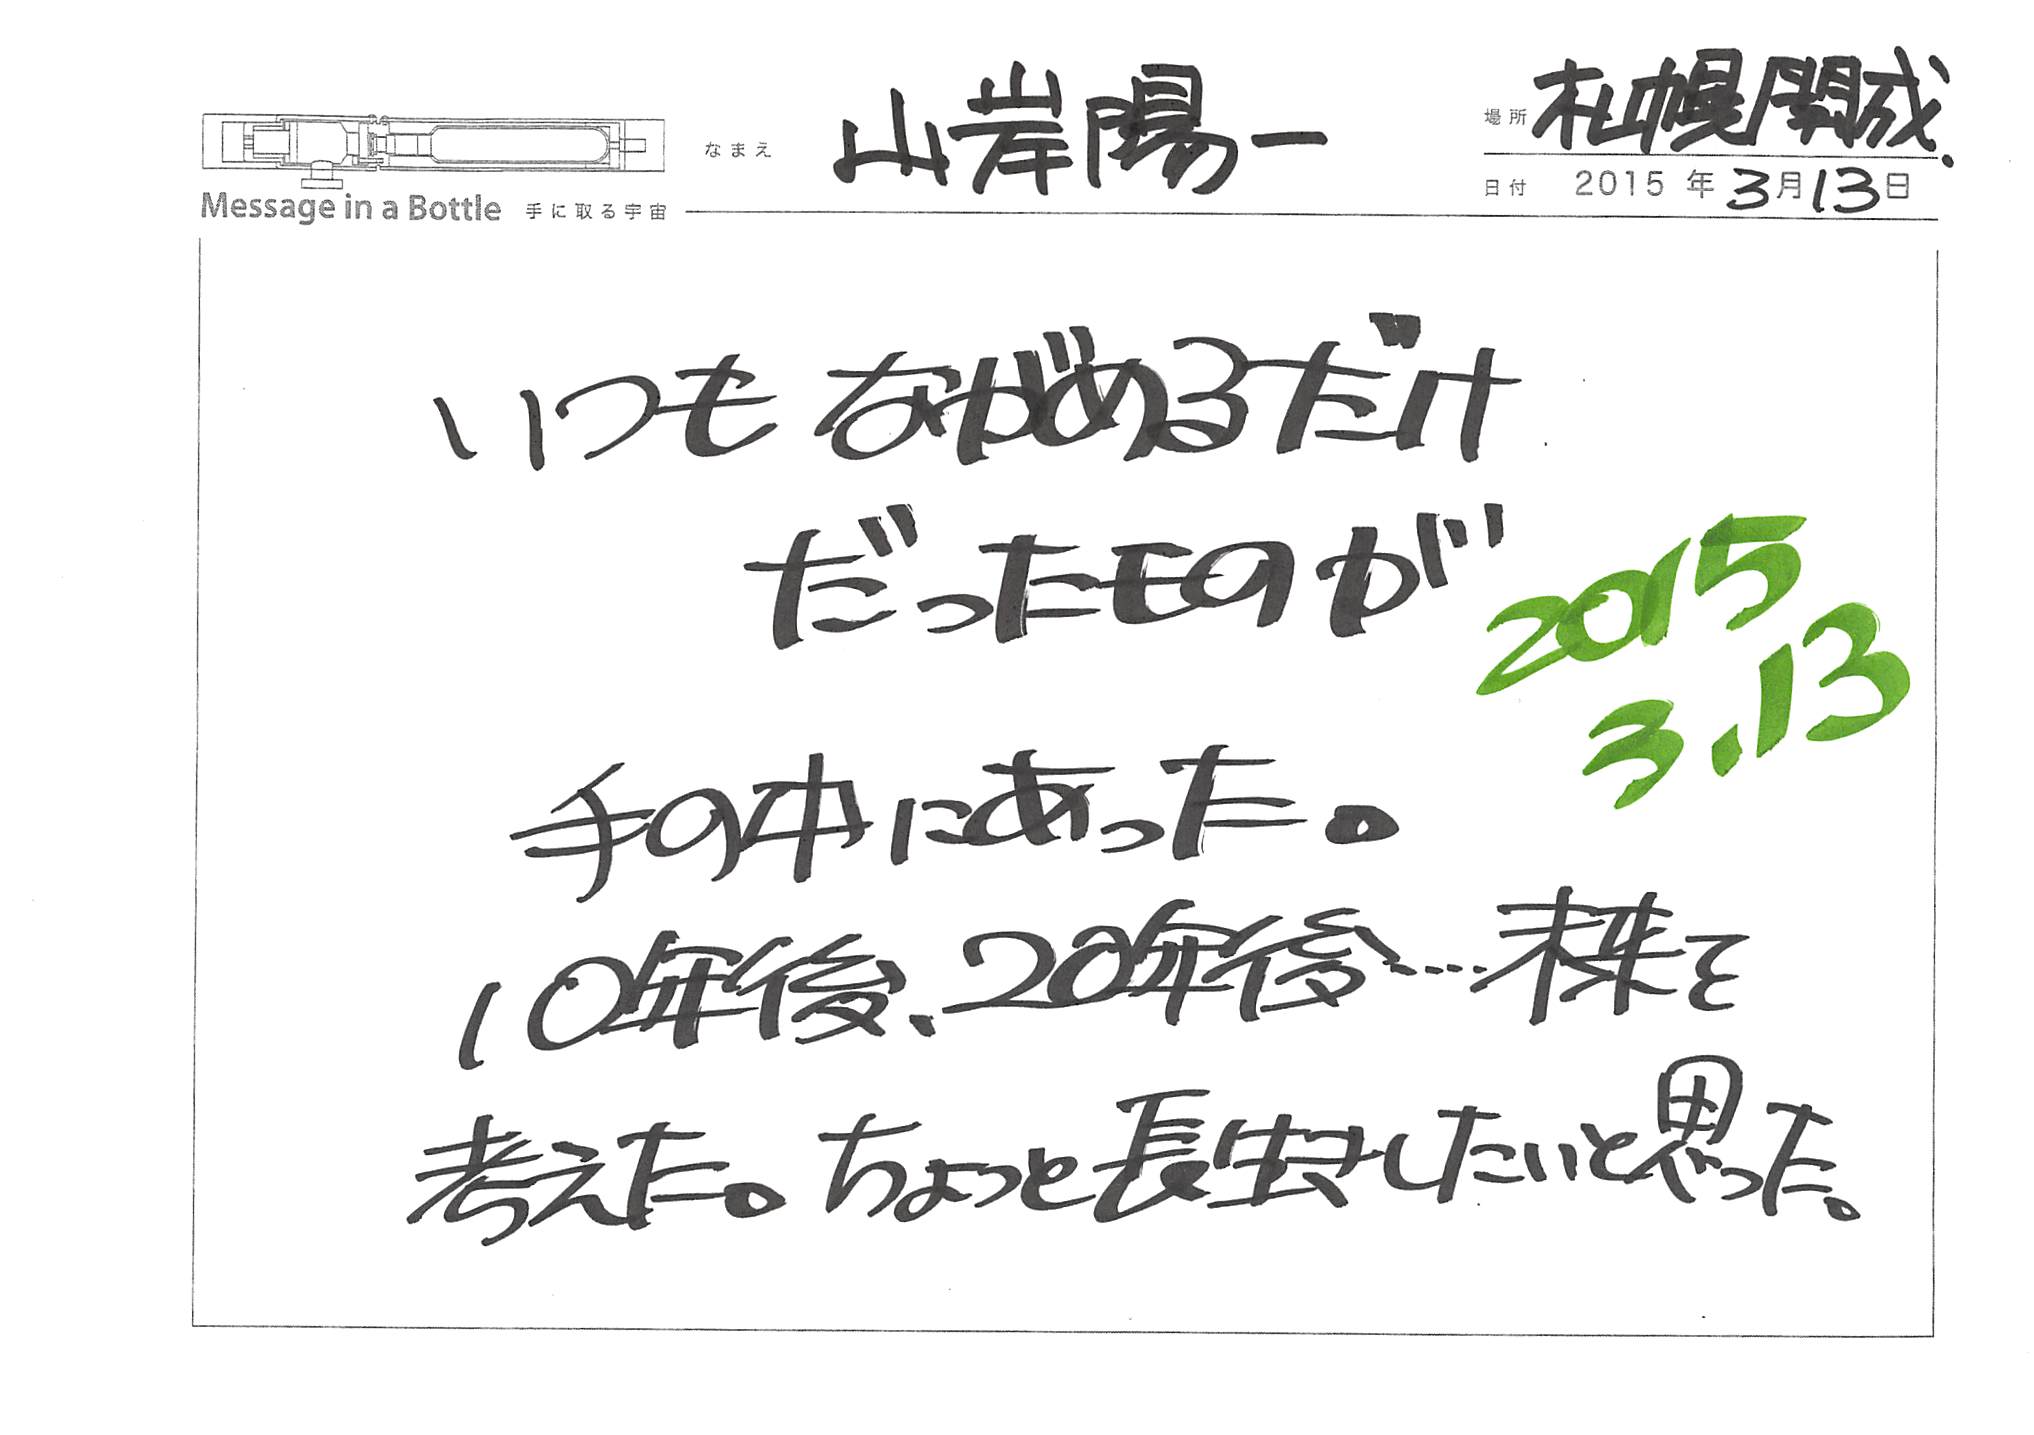 なまえ 山岸陽一
場所 札幌開成.
日付 2015年3月13日
Message in a Bottle 手に取る宇宙
いつもながめるだけ
だったものが
2015
3.13
手の中にあった。
10年後、20年後…未来を
考えた。ちょっと長生きしたいと思った。